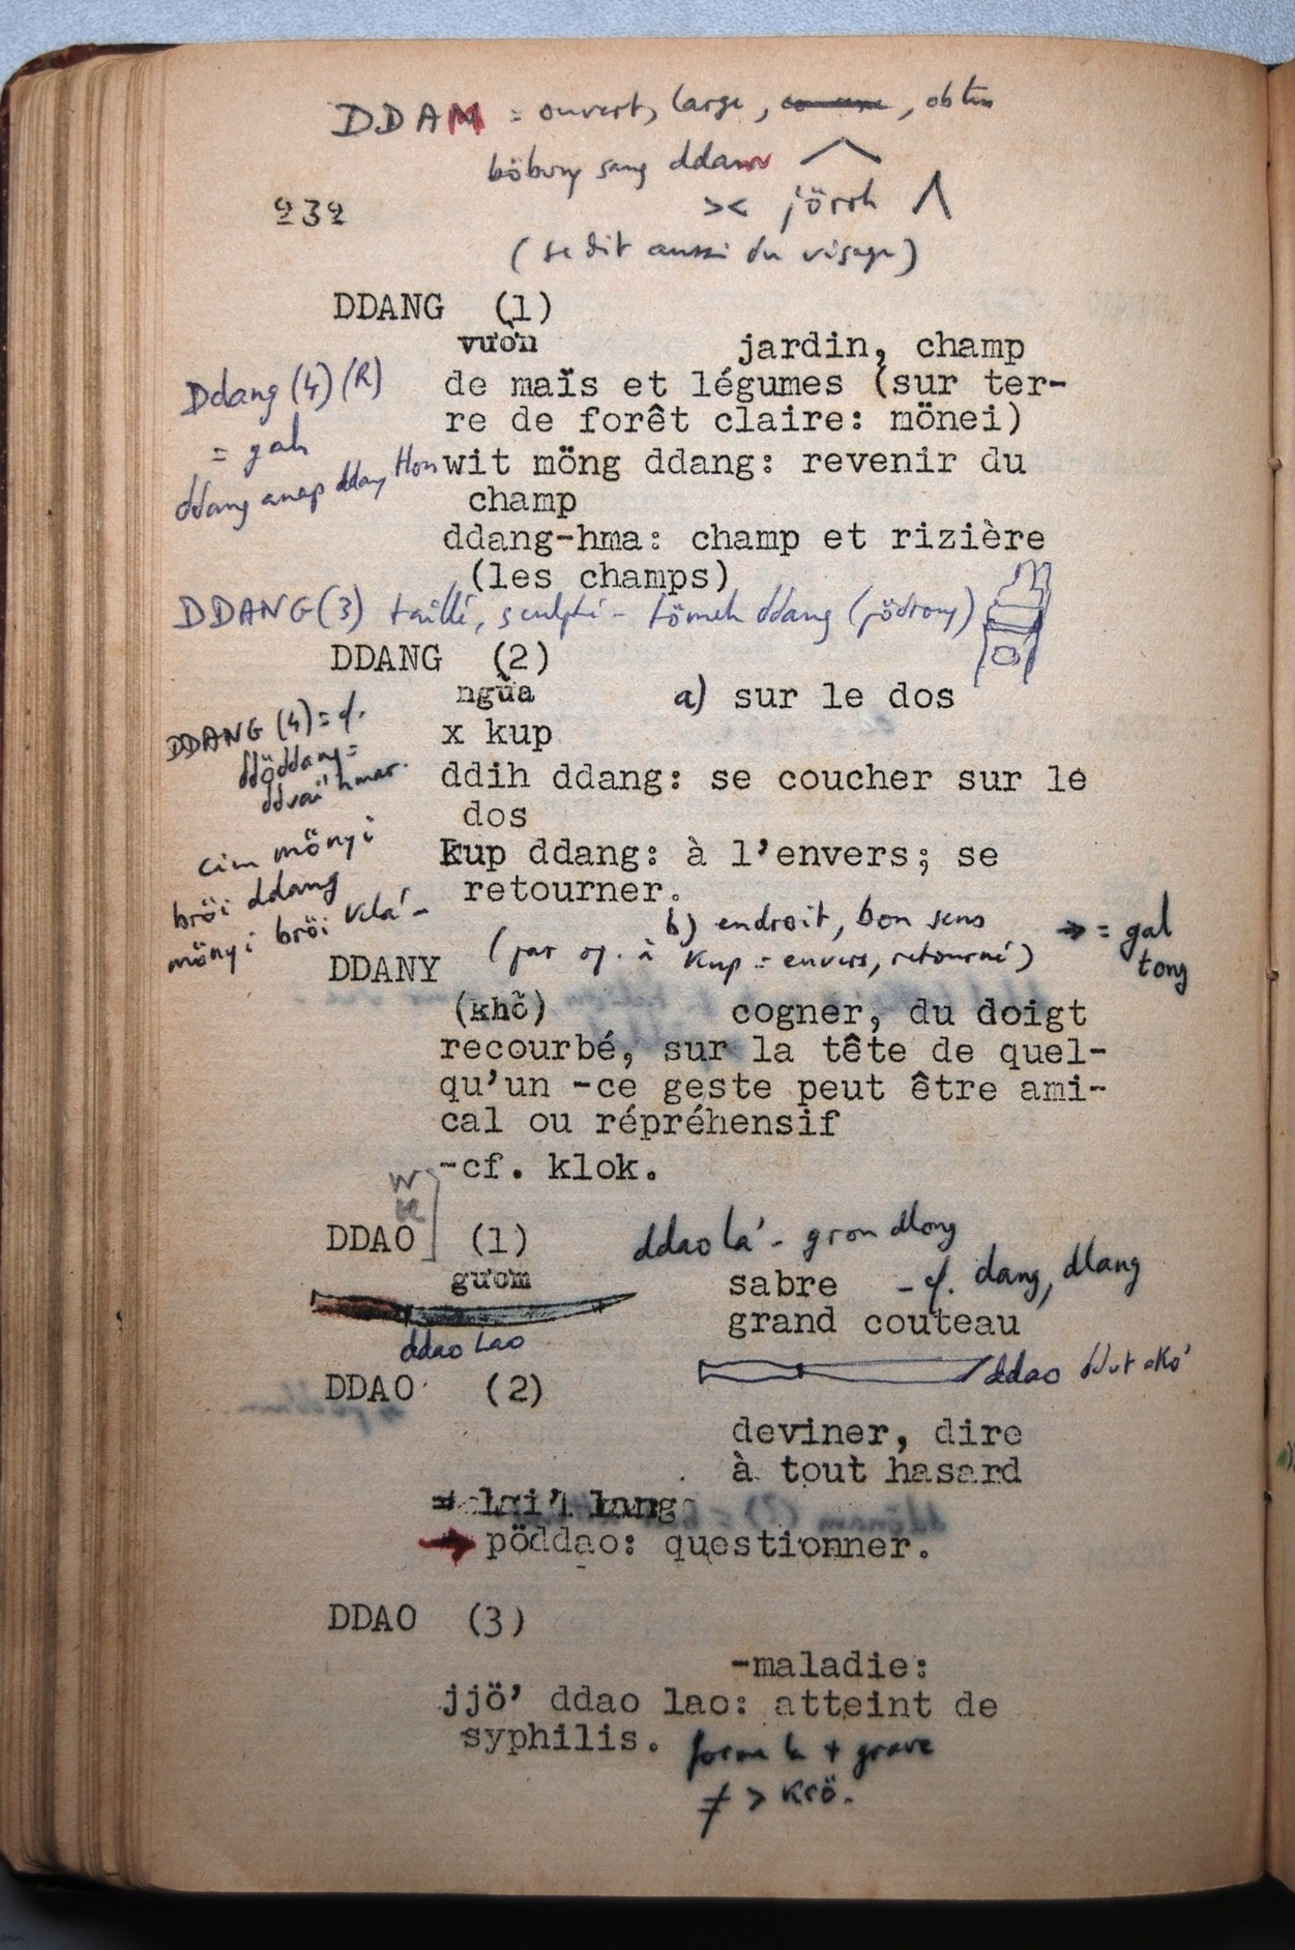 DDAM = ouvert, large, , obtus
böbung sang ddam
232
>< jörrh
(se dit aussi du visage)
DDANG (1)
vườn jardin, champ
Ddang (4) (R)
de maïs et légumes (sur ter-
re de forêt claire: mönei)
= gah
wit möng ddang: revenir du
ddang anap ddang Hon
champ
ddang-hma: champ et rizière
(les champs)
DDANG (3) taillé, sculpté - tömeh ddang (pödrong)
DDANG (2)
ngửa a) sur le dos
DDANG (4) = cf.
x kup
döddang =
ddih ddang: se coucher sur le
ddvai hmar.
dos
cim mönyi
kup ddang: à l'envers; se
bröi ddang
retourner.
mönyi bröi Vila' -
b) endroit, bon sens
→ = gal
tong
(par op. à kup = envers, retourné)
DDANY
(khõ) cogner, du doigt
recourbé, sur la tête de quel-
qu'un -ce geste peut être ami-
cal ou répréhensif
-cf. klok.
DDAO (1) ddao la' - gron dlong
gươm sabre - cf. dang, dlang
grand couteau
ddao Lao
ddao ddut ako'
DDAO (2)
deviner, dire
à tout hasard
→ pöddao: questionner.
DDAO (3)
-maladie:
jjö' ddao lao: atteint de
syphilis. forme la + grave
≠ > krö.